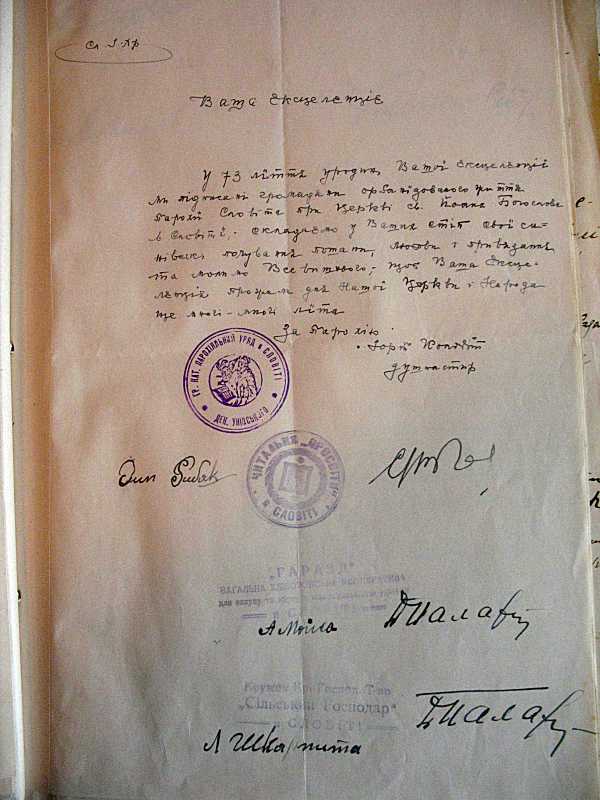 Сл. І. Хр
Вата Ексцелетціє
У 73 ліття уродин Вато́ї Ексцеленції
ми підписані громадяни орґанідованого життя
Парохії Словіта при Церкві св. Йоана Богослова
в Словіті, складаємо у Ваших стіп свої си-
нівські почування пошани, любови і привязання
та молимо Все вишнього, щоб Вата Ексце-
ленція для Натої Церкви і Народа
ще многі-многі літа
За Парохію
Юрій
душпастир
ГР. КАТ. ПАРОХІЯЛЬНИЙ УРЯД в СЛОВІТІ
ДЕК. УНІВСЬКОГО
ЧИТАЛЬНЯ „ПРОСВІТИ"
в СЛОВІТІ
Рибак
„ГАРАЗД"
для закупу та
в С
А Мойла
ДПалаг
Кружок Кр. Господ. Т-ва
„Сільський Господар"
в СЛОВІТІ
ДПалаг
Л Шка